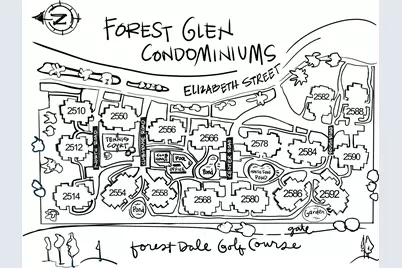 N
FOREST GLEN
CONDOMINIUMS
ELIZABETH STREET
2582
2588
2510
2550
2556
2566
2578
2584
2590
2512
TENNIS
COURT
POOL
Pond
POND
2514
2554
2558
2568
2580
2586
2592
Pond
Garden
gate
Forest Dale Golf Course